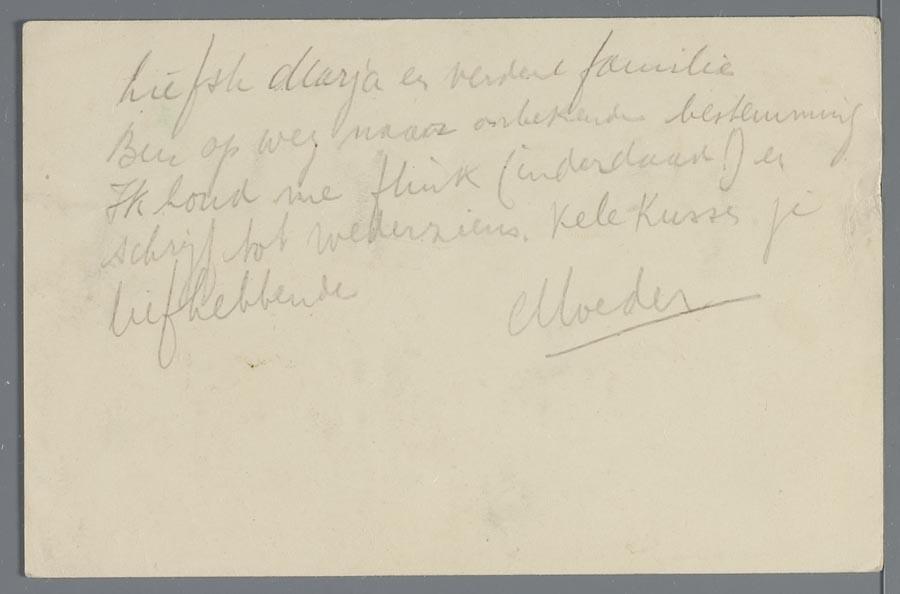 Liefste Marja en verdere familie
Ben op weg naar onbekende bestemming
Ik houd me flink (inderdaad!) en
schrijf tot wederziens. Vele kusses je
liefhebbende Moeder